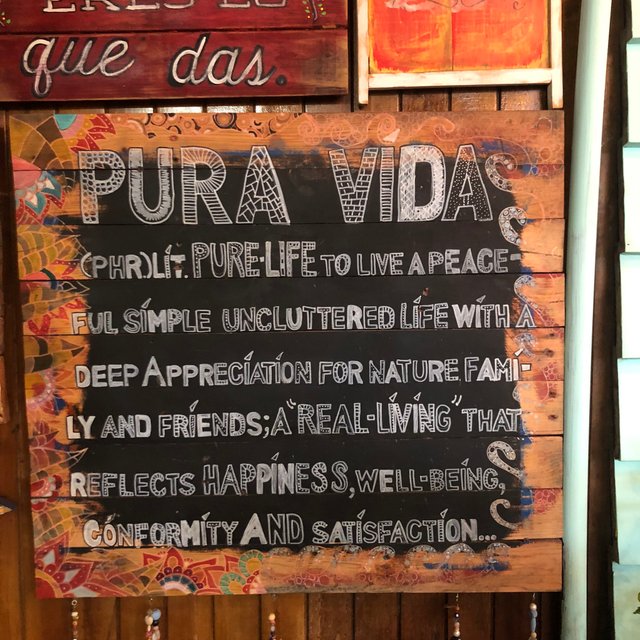 que das.
PURA VIDA
(PHR)LIT. PURE-LIFE TO LIVE A PEACE-
FUL SIMPLE UNCLUTTERED LIFE WITH A
DEEP APPRECIATION FOR NATURE FAMI-
LY AND FRIENDS; A "REAL-LIVING" THAT
REFLECTS HAPPINESS, WELL-BEING,
CONFORMITY AND SATISFACTION...